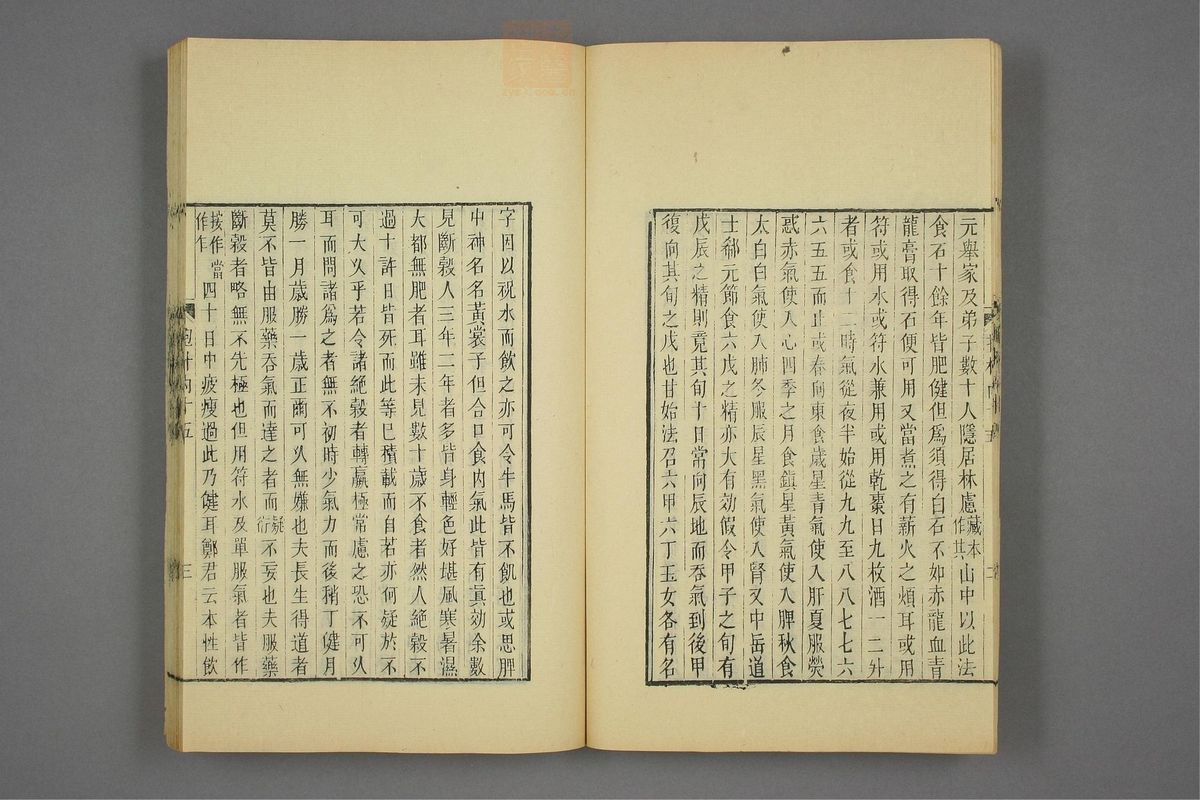 元舉家及弟子數十人隱居林慮藏本作其山中以此法
食石十餘年皆肥健但爲須得白石不如赤龍血青
龍膏取得石便可用又當煮之有薪火之煩耳或用
符或用水或符水兼用或用乾棗日九枚酒一二升
者或食十二時氣從夜半始從九九至八八七七六
六五五而止或春向東食歲星青氣使入肝夏服熒
惑赤氣使入心四季之月食鎮星黃氣使入脾秋食
太白白氣使入肺冬服辰星黑氣使入腎又中岳道
士郗元節食六戊之精亦大有効假令甲子之旬有
戊辰之精則竟其旬十日常向辰地而吞氣到後甲
復向其旬之戊也甘始法召六甲六丁玉女各有名
字因以祝水而飲之亦可令牛馬皆不飢也或思脾
中神名名黃裳子但合口食內氣此皆有眞効余數
見斷穀人三年二年者多皆身輕色好堪風寒暑濕
大都無肥者耳雖未見數十歲不食者然人絶穀不
過十許日皆死而此等已積載而自若亦何疑於不
可大乆乎若令諸絶穀者轉羸極常慮之恐不可乆
耳而問諸爲之者無不初時少氣力而後稍丁健月
勝一月歲勝一歲正爾可乆無嫌也夫長生得道者
莫不皆由服藥吞氣而達之者而疑衍不妄也夫服藥
斷穀者略無不先極也但用符水及單服氣者皆作
按作當作乍四十日中疲瘦過此乃健耳鄭君云本性飲
抱朴內十五
三